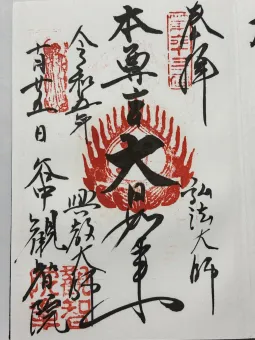 奉拝
弘法大師
本尊大日如来
興教大師
令和五年
廿五日
谷中観智院